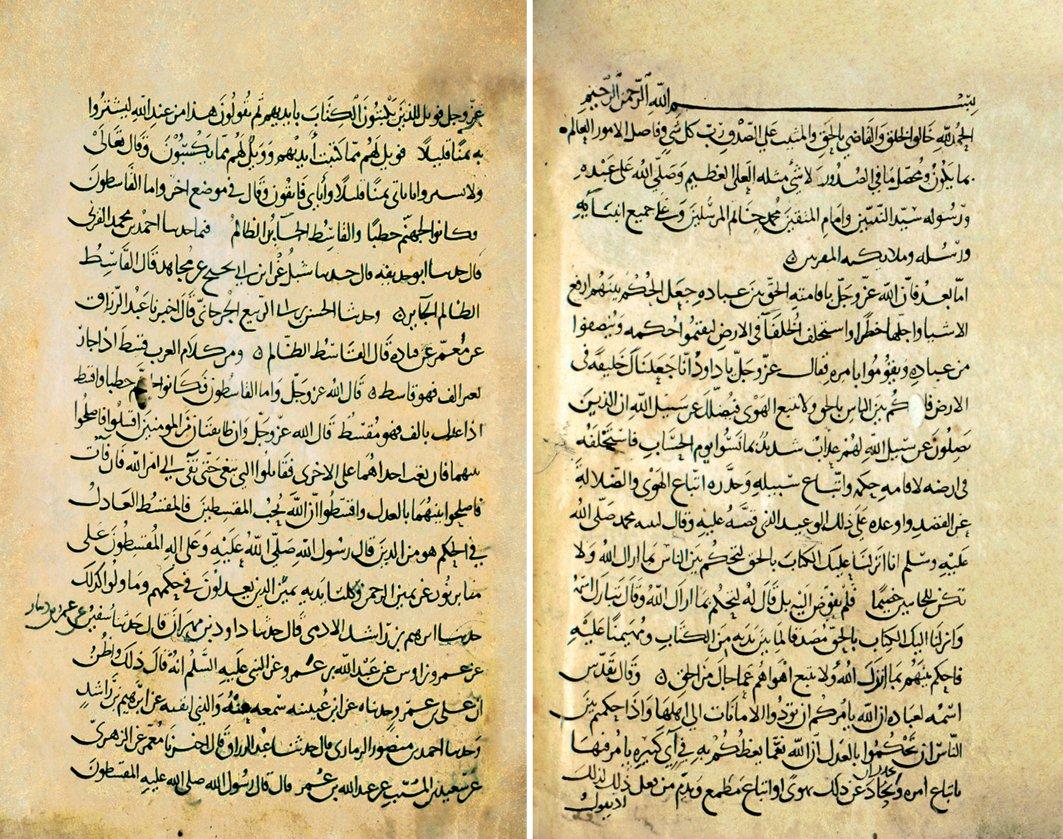 بسم الله الرحمن الرحيم
الحمد لله خالق الخلق والقاضي بالحق والمثيب على الصدق رب كل شي وفاصل الامور العالم
بما يكون ومحصل ما في الصدور لا شي مثله العلي العظيم وصلى الله على عبده
ورسوله سيد النبيين وامام المتقين محمد خاتم المرسلين وعلى جميع انبيآيه
ورسله وملايكته المقربين
اما بعد فان الله عز وجل باقامته الحق بين عباده جعل الحكم بينهم ارفع
الاشيا واجلها خطرا واستخلف الخلفآ في الارض ليقيموا حكمه وينصفوا
من عباده ويقوموا بامره فقال عز وجل يا داود انا جعلناك خليفة في
الارض فاحكم بين الناس بالحق ولا تتبع الهوى فيضلك عن سبيل الله ان الذين
يضلون عن سبيل الله لهم عذاب شديد بما نسوا يوم الحساب فاستخلفه
في ارضه لاقامة حكمه واتباع سبيله وحذره اتباع الهوى والضلالة
عن القصد واوعده على ذلك الوعيد الذي قصه عليه وقال لنبيه محمد صلى الله
عليه وسلم انا انزلنا عليك الكتاب بالحق لتحكم بين الناس بما اراك الله ولا
تكن للخاينين خصيما فلم يفوض اليه بل قال له لتحكم بما اراك الله وقال تبارك اسمه
وانزلنا اليك الكتاب بالحق مصدقا لما بين يديه من الكتاب ومهيمنا عليه
فاحكم بينهم بما انزل الله ولا تتبع اهواهم عما جاك من الحق وقال تقدس
اسمه لعباده ان الله يامركم ان تودوا الامانات الى اهلها واذا حكمتم بين
الناس ان تحكموا بالعدل ان الله نعما يعظكم به في آي كثيرة يامر فيها
باتباع امره ويحذر عن ذلك بهوى او اتباع مطمع ويذم من يعدل ذلك لذلك
عز وجل فويل للذين يكتبون الكتاب بايديهم ثم يقولون هذا من عند الله ليشتروا
به ثمنا قليلا فويل لهم مما كتبت أيديهم وويل لهم مما يكسبون وقال تعالى
ولا تشتروا باياتي ثمنا قليلا وأياي فاتقون وقال في موضع اخر واما القاسطون
فكانوا لجهنم حطبا والقاسط الجآير الظالم فما حدثنا احمد بن محمد القرني
قال حدثنا ابو حذيفة قال حدثنا شبل عن ابن ابي نجيح عن مجاهد قال القاسط
الظالم الجاير وحدثنا الحسن بن ابي الربيع الجرجاني قال اخبرنا عبد الرزاق
عن معمر عن قتادة قال القاسط الظالم ومن كلام العرب قسط اذا جار
بغير الف فهو قاسط قال الله عز وجل واما القاسطون فكانوا لجهنم حطبا واقسط
اذا عدل بالف فهو مقسط قال الله عز وجل وان طايفتان من المومنين اقتتلوا فاصلحوا
بينهما فان بغت احداهما على الاخرى فقاتلوا التي تبغي حتى تفي الى امر الله فان فآت
فاصلحوا بينهما بالعدل واقسطوا ان الله يحب المقسطين فالمقسط العادل
في الحكم هو من الذين قال رسول الله صلى الله عليه وعلى اله المقسطون على
منابر نور عن يمين الرحمن وكلتا يديه يمين الذين يعدلون في حكمهم وما ولوا كذلك
حدثنا ابرهيم بن راشد الادمي قال حدثنا داود بن مهران قال حدثنا سفين عن عمرو بن دينار
عن عمرو بن اوس عن عبد الله بن عمرو عن النبي عليه السلم انه قال ذلك واظن
ان علي بن عمرو حدثناه عن ابن عيينة سمعه منه والذي اتقنه عن ابرهيم بن راشد
وحدثنا احمد بن منصور الرمادي قال حدثنا عبد الرزاق قال اخبرنا معمر عن الزهري
عن سعيد بن المسيب عن عبد الله بن عمر قال قال رسول الله صلى الله عليه المقسطون